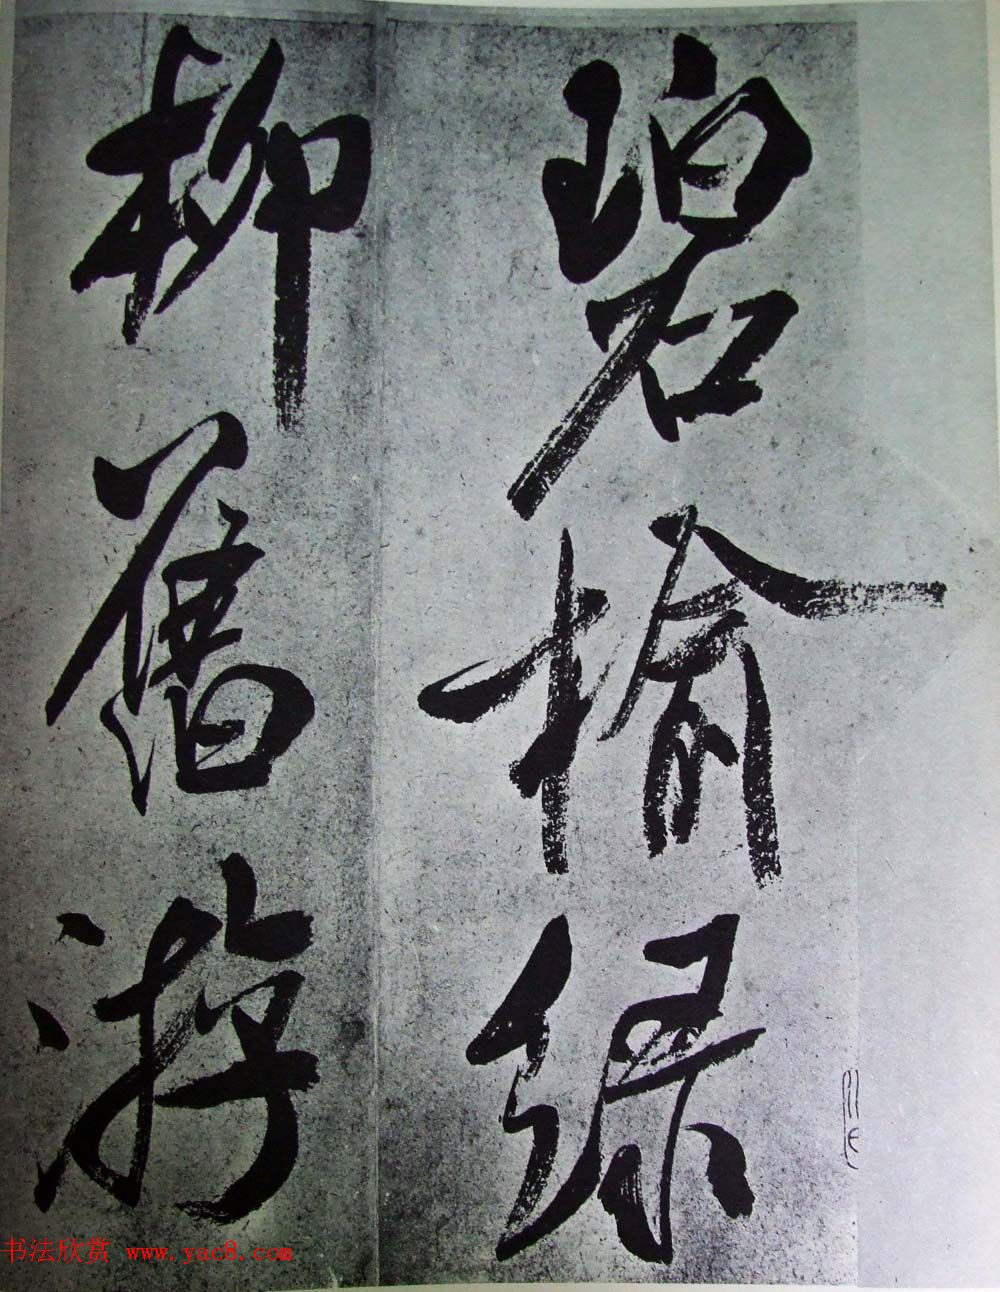 碧榆绿
柳舊游
书法欣赏 www.yac8.com